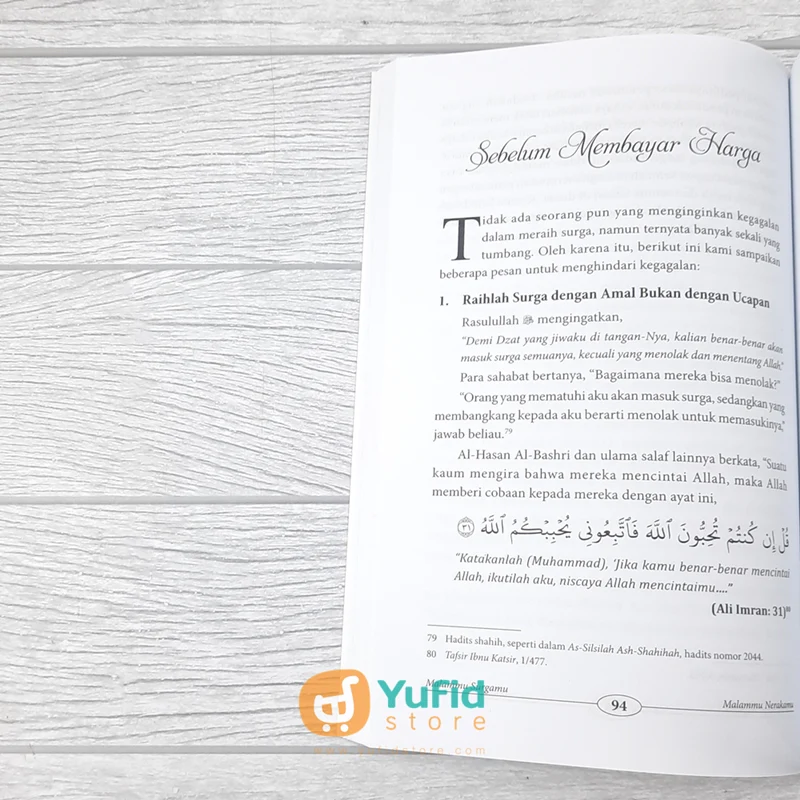 Sebelum Membayar Harga
Tidak ada seorang pun yang menginginkan kegagalan
dalam meraih surga, namun ternyata banyak sekali yang
tumbang. Oleh karena itu, berikut ini kami sampaikan
beberapa pesan untuk menghindari kegagalan:
1. Raihlah Surga dengan Amal Bukan dengan Ucapan
Rasulullah ﷺ mengingatkan,
"Demi Dzat yang jiwaku di tangan-Nya, kalian benar-benar akan
masuk surga semuanya, kecuali yang menolak dan menentang Allah."
Para sahabat bertanya, "Bagaimana mereka bisa menolak?"
"Orang yang mematuhi aku akan masuk surga, sedangkan yang
membangkang kepada aku berarti menolak untuk memasukinya,"
jawab beliau.79
Al-Hasan Al-Bashri dan ulama salaf lainnya berkata, "Suatu
kaum mengira bahwa mereka mencintai Allah, maka Allah
memberi cobaan kepada mereka dengan ayat ini,
قُلْ إِن كُنتُمْ تُحِبُّونَ ٱللَّهَ فَٱتَّبِعُونِى يُحْبِبْكُمُ ٱللَّهُ ٣١
"Katakanlah (Muhammad), 'Jika kamu benar-benar mencintai
Allah, ikutilah aku, niscaya Allah mencintaimu...."
(Ali Imran: 31)80
79 Hadits shahih, seperti dalam As-Silsilah Ash-Shahihah, hadits nomor 2044.
80 Tafsir Ibnu Katsir, 1/477.
Malammu Surgamu
94
Malammu Nerakamu
YuFid
store
www.yufidstore.com